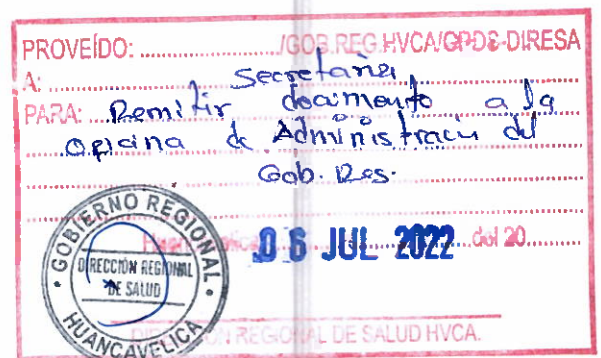 PROVEÍDO: ............../GOB.REG.HVCA/GRDS-DIRESA
A: Secretaria
PARA: Remitir documento a la
oficina de Administración del
Gob. Reg.
06 JUL 2022 del 20
GOBIERNO REGIONAL
DIRECCIÓN REGIONAL
DE SALUD
HUANCAVELICA
DIRECCIÓN REGIONAL DE SALUD HVCA.